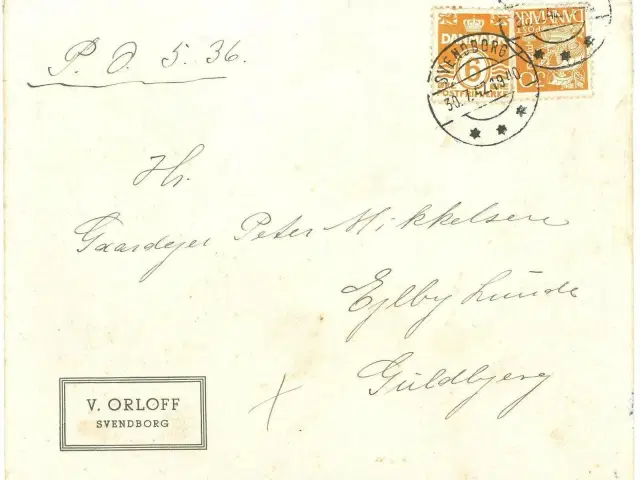 P. O. 5. 36.
DANMARK
6
POSTFRIM
DANMARK
SVENDBORG
30.7.42.19-10
Hr.
Gaardejer Peter Mikkelsen
Ejlby Lunde
Guldbjerg
V. ORLOFF
SVENDBORG